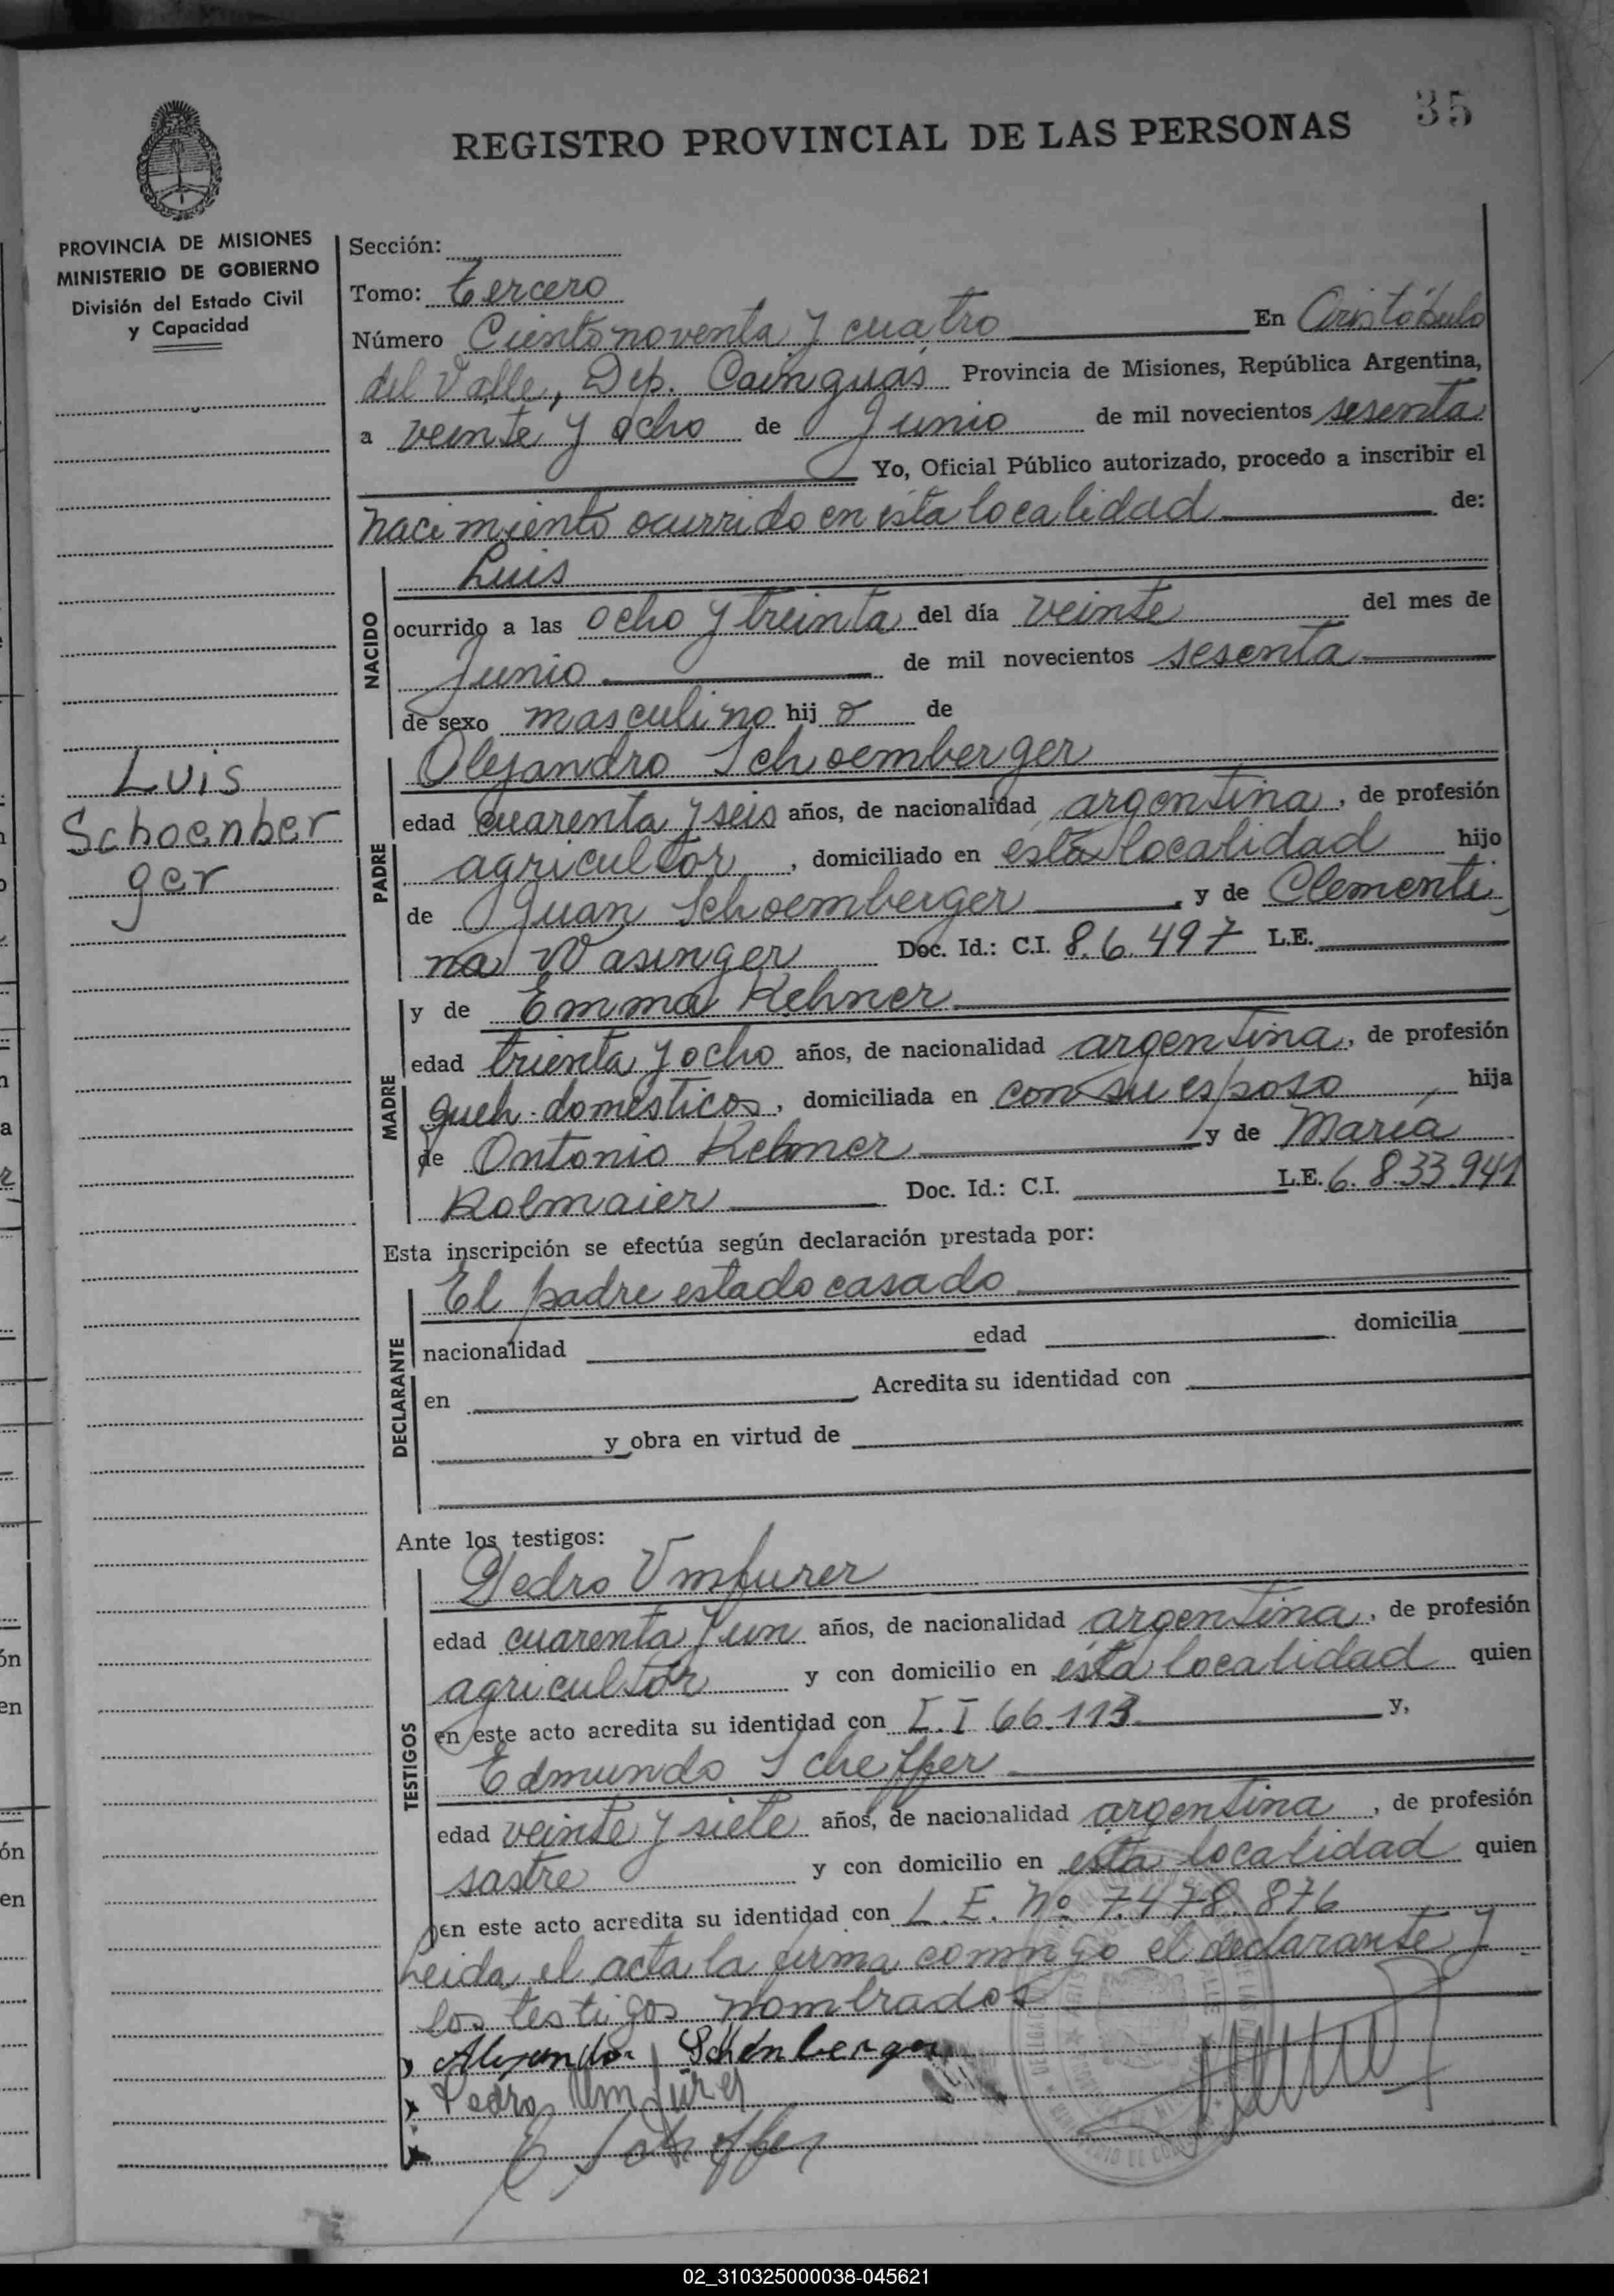 35
REGISTRO PROVINCIAL DE LAS PERSONAS
PROVINCIA DE MISIONES
MINISTERIO DE GOBIERNO
División del Estado Civil
y Capacidad
Luis
Schoenber
ger
Sección:
Tomo: tercero
Número Ciento noventa y cuatro En Aristóbulo
del Valle, Dep. Cainguás Provincia de Misiones, República Argentina,
a veinte y ocho de Junio de mil novecientos sesenta
Yo, Oficial Público autorizado, procedo a inscribir el
nacimiento ocurrido en ésta localidad de:
NACIDO
Luis
ocurrido a las ocho y treinta del día veinte del mes de
Junio de mil novecientos sesenta
de sexo masculino hij o de
PADRE
Alejandro Schoemberger
edad cuarenta y seis años, de nacionalidad argentina, de profesión
agricultor, domiciliado en ésta localidad hijo
de Juan Schoemberger y de Clementi
na Wasinger Doc. Id.: C.I. 8.6.497 L.E.
MADRE
y de Emma Kehner
edad trienta y ocho años, de nacionalidad argentina, de profesión
queh. domésticos, domiciliada en con su esposo hija
de Antonio Kehner y de María
Kolmaier Doc. Id.: C.I. L.E. 6.833.941
Esta inscripción se efectúa según declaración prestada por:
DECLARANTE
El padre estado casado
nacionalidad edad domicilia
en Acredita su identidad con
y obra en virtud de
Ante los testigos:
TESTIGOS
Pedro Umfurer
edad cuarenta y un años, de nacionalidad argentina, de profesión
agricultor y con domicilio en ésta localidad quien
en este acto acredita su identidad con 66.113 y,
Edmundo Scheffer
edad veinte y siete años, de nacionalidad argentina, de profesión
sastre y con domicilio en ésta localidad quien
en este acto acredita su identidad con L.E. Nº 7.478.876
Leida el acta la firma conmigo el declarante y
los testigos nombrados
Schönberger
Pedro Umfürer
E Scheffer
02_310325000038-045621